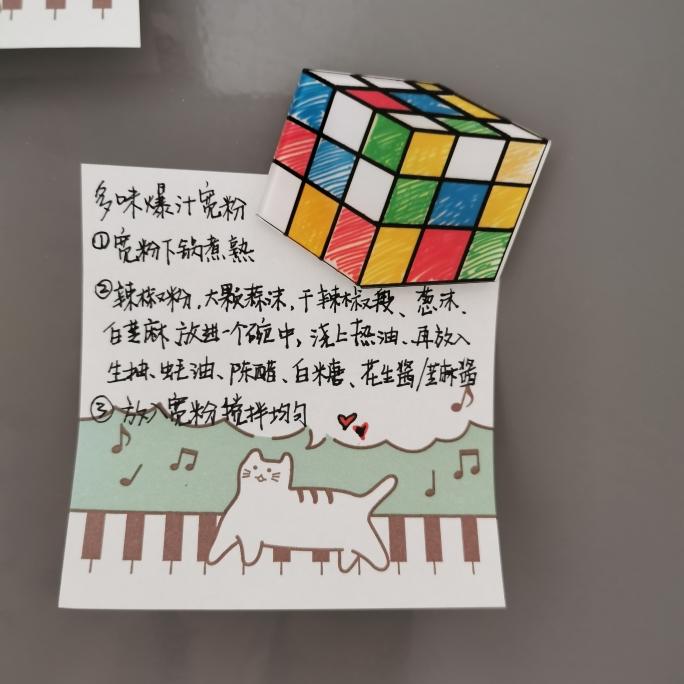 多味爆汁宽粉
①宽粉下锅煮熟
②辣椒粉,大颗蒜沫,干辣椒段、葱沫、
白芝麻放进一个碗中,浇上热油、再放入
生抽、蚝油、陈醋、白米糖、花生酱/芝麻酱
③放入宽粉搅拌均匀